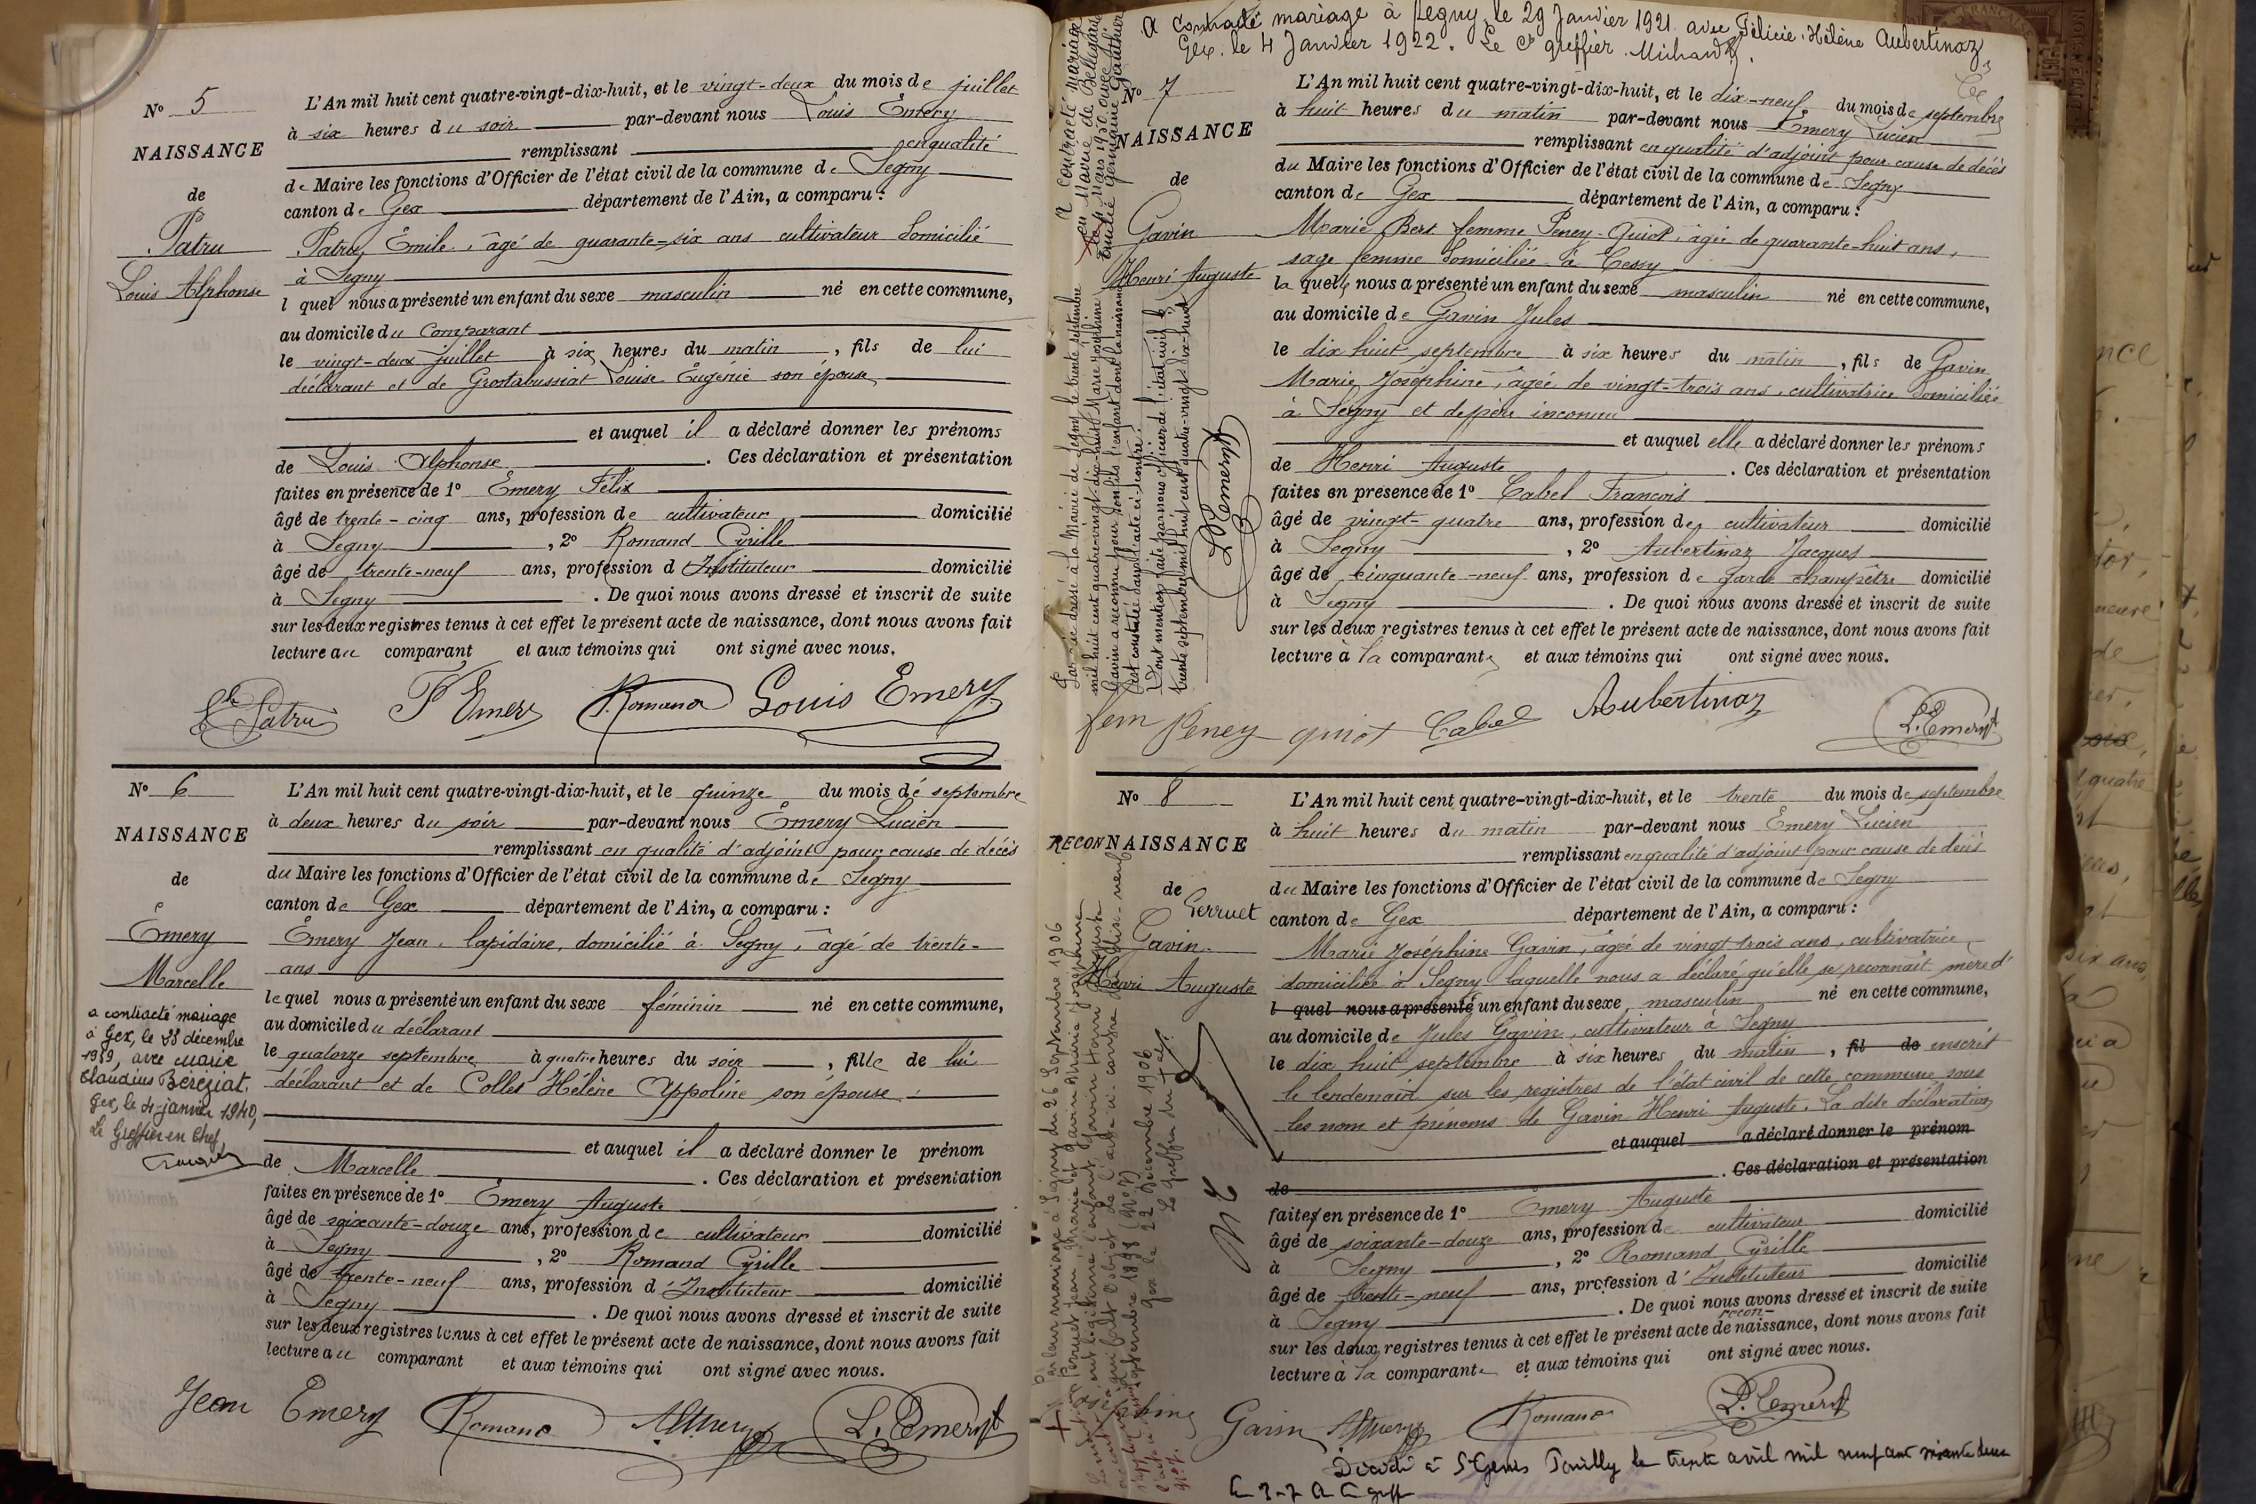 N° 5
NAISSANCE
de
Patru
Louis Alphonse
L'An mil huit cent quatre-vingt-dix-huit, et le vingt-deux du mois de juillet
à six heures du soir par-devant nous Louis Émery
remplissant en qualité
de Maire les fonctions d'Officier de l'état civil de la commune de Segny
canton de Gex département de l'Ain, a comparu :
Patru, Émile, âgé de quarante-six ans cultivateur domicilié
à Segny
l quel nous a présenté un enfant du sexe masculin né en cette commune,
au domicile du comparant
le vingt-deux juillet à six heures du matin, fils de lui
déclarant et de Grostabussiat Louise Eugénie son épouse
et auquel il a déclaré donner les prénoms
de Louis Alphonse. Ces déclaration et présentation
faites en présence de 1° Émery Félix
âgé de trente-cinq ans, profession de cultivateur domicilié
à Segny, 2° Romand Cyrille
âgé de trente-neuf ans, profession d Instituteur domicilié
à Segny. De quoi nous avons dressé et inscrit de suite
sur les deux registres tenus à cet effet le présent acte de naissance, dont nous avons fait
lecture au comparant et aux témoins qui ont signé avec nous.
Patru F Emery Romand Louis Emery
N° 6
NAISSANCE
de
Émery
Marcelle
a contracté mariage
à Gex, le 28 décembre
1939, avec Marie
Claudius Béréziat.
Gex, le 4 janvier 1940,
Le Greffier en Chef,
L'An mil huit cent quatre-vingt-dix-huit, et le quinze du mois de septembre
à deux heures du soir par-devant nous Émery Lucien
remplissant en qualité d'adjoint pour cause de décès
du Maire les fonctions d'Officier de l'état civil de la commune de Segny
canton de Gex département de l'Ain, a comparu :
Émery Jean, lapidaire, domicilié à Segny, âgé de trente-
ans
lequel nous a présenté un enfant du sexe féminin né en cette commune,
au domicile du déclarant
le quatorze septembre à quatre heures du soir, fille de lui
déclarant et de Collet Hélène Appoline son épouse.
et auquel il a déclaré donner le prénom
de Marcelle. Ces déclaration et présentation
faites en présence de 1° Émery Auguste
âgé de soixante-douze ans, profession de cultivateur domicilié
à Segny, 2° Romand Cyrille
âgé de trente-neuf ans, profession d'Instituteur domicilié
à Segny. De quoi nous avons dressé et inscrit de suite
sur les deux registres tenus à cet effet le présent acte de naissance, dont nous avons fait
lecture au comparant et aux témoins qui ont signé avec nous.
Jean Emery Romand L. Emery
A contracté mariage à Segny, le 29 Janvier 1921 avec Félicie Hélène Aubertinaz
Gex. le 4 Janvier 1922. Le Cs greffier. Michaud.
N° 7
NAISSANCE
de
Gavin
Henri Auguste
A contracté mariage
en Mairie de Bellegarde
Mars 1950 avec
Emilie Germaine Gauthier
Par acte dressé à la Mairie de Segny le trente septembre
mil huit cent quatre-vingt-dix-huit Marie Joséphine
Gavin a reconnu pour son fils l'enfant dont la naissance
est constatée dans l'acte ci-contre.
Dont mention faite par nous officier de l'état civil le
trente septembre mil huit cent quatre-vingt-dix-huit
L. Emery
L'An mil huit cent quatre-vingt-dix-huit, et le dix-neuf du mois de septembre
à huit heures du matin par-devant nous Émery Lucien
remplissant en qualité d'adjoint pour cause de décès
du Maire les fonctions d'Officier de l'état civil de la commune de Segny
canton de Gex département de l'Ain, a comparu :
Marie Bert femme Peney-Quiot, âgée de quarante-huit ans,
sage femme domiciliée à Cessy
laquelle nous a présenté un enfant du sexe masculin né en cette commune,
au domicile de Gavin Jules
le dix huit septembre à six heures du matin, fils de Gavin
Marie Joséphine, âgée de vingt-trois ans, cultivatrice domiciliée
à Segny et de père inconnu
et auquel elle a déclaré donner les prénoms
de Henri Auguste. Ces déclaration et présentation
faites en présence de 1° Cabel François
âgé de vingt-quatre ans, profession de cultivateur domicilié
à Segny, 2° Aubertinaz Jacques
âgé de cinquante-neuf ans, profession de garde champêtre domicilié
à Segny. De quoi nous avons dressé et inscrit de suite
sur les deux registres tenus à cet effet le présent acte de naissance, dont nous avons fait
lecture à la comparante et aux témoins qui ont signé avec nous.
fem Peney quiot Cabel Aubertinaz L. Emery
N° 8
RECONNAISSANCE
de
Perruet
Gavin
Henri Auguste
L'An mil huit cent quatre-vingt-dix-huit, et le trente du mois de septembre
à huit heures du matin par-devant nous Émery Lucien
remplissant en qualité d'adjoint pour cause de décès
du Maire les fonctions d'Officier de l'état civil de la commune de Segny
canton de Gex département de l'Ain, a comparu :
Marie Joséphine Gavin, âgée de vingt trois ans, cultivatrice,
domiciliée à Segny laquelle nous a déclaré qu'elle se reconnaît mère d'
l quel nous a présenté un enfant du sexe masculin né en cette commune,
au domicile de Jules Gavin, cultivateur à Segny
le dix huit septembre à six heures du matin, fil de inscrit
le lendemain sur les registres de l'état civil de cette commune sous
les nom et prénoms de Gavin Henri Auguste. La dite déclaration
et auquel a déclaré donner le prénom
de. Ces déclaration et présentation
faites en présence de 1° Émery Auguste
âgé de soixante-douze ans, profession de cultivateur domicilié
à Segny, 2° Romand Cyrille
âgé de trente-neuf ans, profession d'Instituteur domicilié
à Segny. De quoi nous avons dressé et inscrit de suite
recon-
sur les deux registres tenus à cet effet le présent acte de naissance, dont nous avons fait
lecture à la comparante et aux témoins qui ont signé avec nous.
Gavin Romand L. Emery
Décédé à St Genis Pouilly le trente avril mil neuf cent soixante deux